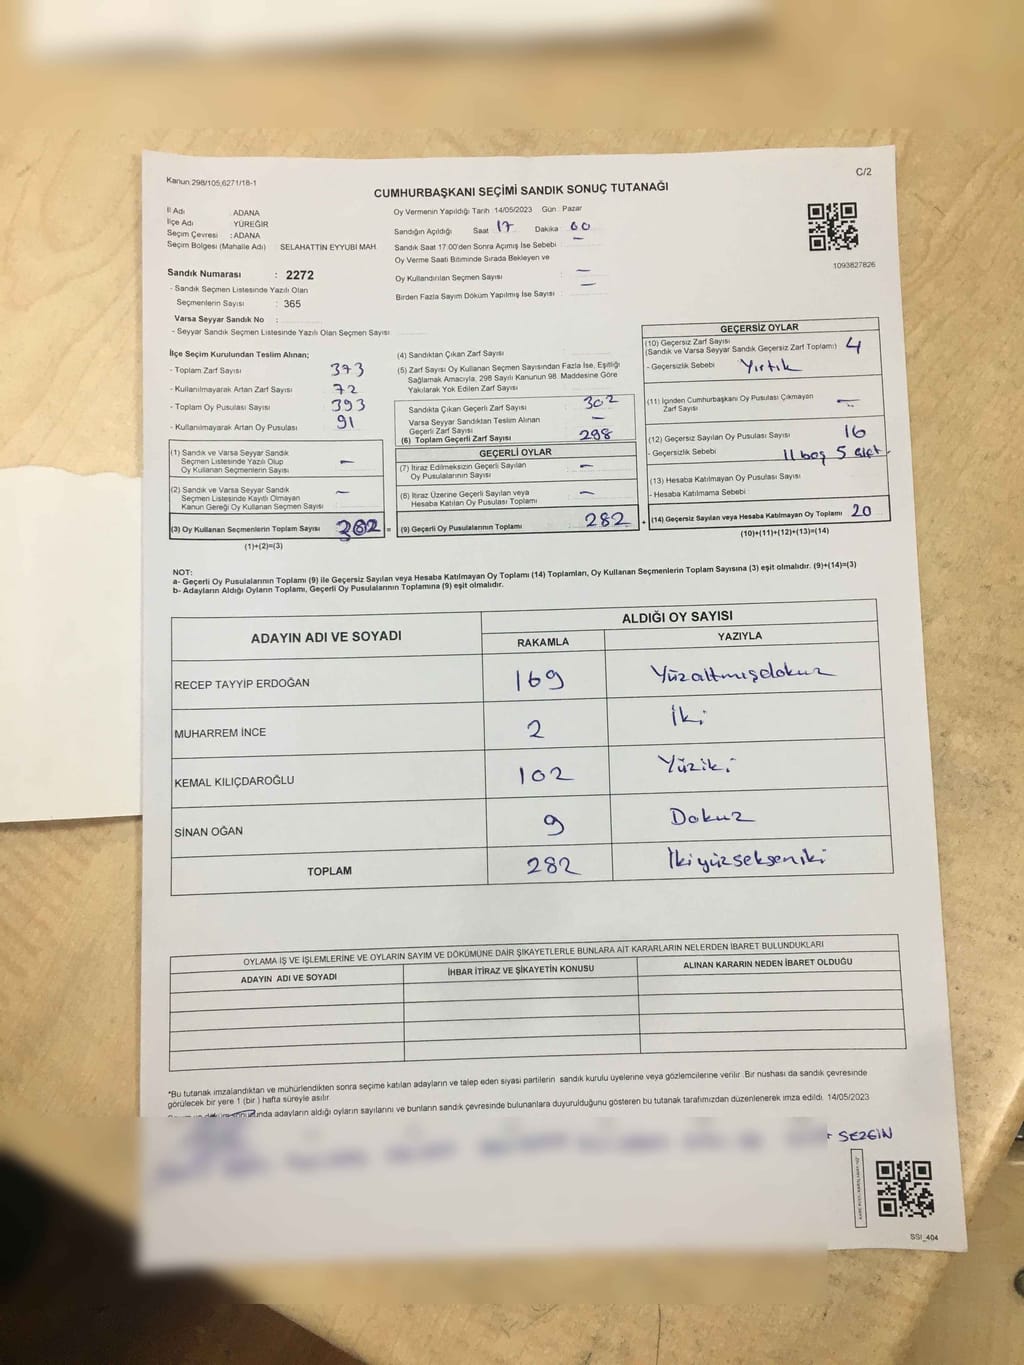 Kanun:298/105;6271/18-1
C/2
CUMHURBAŞKANI SEÇİMİ SANDIK SONUÇ TUTANAĞI
İl Adı : ADANA
İlçe Adı : YÜREĞİR
Seçim Çevresi : ADANA
Seçim Bölgesi (Mahalle Adı) : SELAHATTİN EYYUBİ MAH
Oy Vermenin Yapıldığı Tarih 14/05/2023 Gün : Pazar
Sandığın Açıldığı Saat 17 Dakika 00
Sandık Saat 17:00'den Sonra Açımış İse Sebebi : —
Oy Verme Saati Bitiminde Sırada Bekleyen ve
Oy Kullandırılan Seçmen Sayısı : —
Birden Fazla Sayım Döküm Yapılmış İse Sayısı : —
1093827826
Sandık Numarası : 2272
- Sandık Seçmen Listesinde Yazılı Olan
Seçmenlerin Sayısı : 365
Varsa Seyyar Sandık No :
- Seyyar Sandık Seçmen Listesinde Yazılı Olan Seçmen Sayısı
İlçe Seçim Kurulundan Teslim Alınan;
- Toplam Zarf Sayısı 373
- Kullanılmayarak Artan Zarf Sayısı 72
- Toplam Oy Pusulası Sayısı 393
- Kullanılmayarak Artan Oy Pusulası 91
(1) Sandık ve Varsa Seyyar Sandık
Seçmen Listesinde Yazılı Olup
Oy Kullanan Seçmenlerin Sayısı —
(2) Sandık ve Varsa Seyyar Sandık
Seçmen Listesinde Kayıtlı Olmayan
Kanun Gereği Oy Kullanan Seçmen Sayısı —
(3) Oy Kullanan Seçmenlerin Toplam Sayısı =
(1)+(2)=(3)
(4) Sandıktan Çıkan Zarf Sayısı :
(5) Zarf Sayısı Oy Kullanan Seçmen Sayısından Fazla İse, Eşitliği
Sağlamak Amacıyla, 298 Sayılı Kanunun 98. Maddesine Göre
Yakılarak Yok Edilen Zarf Sayısı :
Sandıkta Çıkan Geçerli Zarf Sayısı : 302
Varsa Seyyar Sandıktan Teslim Alınan
Geçerli Zarf Sayısı —
(6) Toplam Geçerli Zarf Sayısı 298
GEÇERLİ OYLAR
(7) İtiraz Edilmeksizin Geçerli Sayılan
Oy Pusulasının Sayısı : —
(8) İtiraz Üzerine Geçerli Sayılan veya
Hesaba Katılan Oy Pusulası Toplamı : —
(9) Geçerli Oy Pusulalarının Toplamı : 282 +
GEÇERSİZ OYLAR
(10) Geçersiz Zarf Sayısı
(Sandık ve Varsa Seyyar Sandık Geçersiz Zarf Toplamı) : 4
- Geçersizlik Sebebi : Yırtık
(11) İçinden Cumhurbaşkanı Oy Pusulası Çıkmayan
Zarf Sayısı : —
(12) Geçersiz Sayılan Oy Pusulası Sayısı : 16
- Geçersizlik Sebebi : 11 boş 5 çift
(13) Hesaba Katılmayan Oy Pusulası Sayısı
- Hesaba Katılmama Sebebi
(14) Geçersiz Sayılan veya Hesaba Katılmayan Oy Toplamı 20
(10)+(11)+(12)+(13)=(14)
NOT:
a- Geçerli Oy Pusulalarının Toplamı (9) ile Geçersiz Sayılan veya Hesaba Katılmayan Oy Toplamı (14) Toplamları, Oy Kullanan Seçmenlerin Toplam Sayısına (3) eşit olmalıdır. (9)+(14)=(3)
b- Adayların Aldığı Oyların Toplamı, Geçerli Oy Pusulalarının Toplamına (9) eşit olmalıdır.
ADAYIN ADI VE SOYADI
ALDIĞI OY SAYISI
RAKAMLA YAZIYLA
RECEP TAYYİP ERDOĞAN 169 Yüzaltmışdokuz
MUHARREM İNCE 2 İki
KEMAL KILIÇDAROĞLU 102 Yüziki
SİNAN OĞAN 9 Dokuz
TOPLAM 282 İkiyüzsekseniki
OYLAMA İŞ VE İŞLEMLERİNE VE OYLARIN SAYIM VE DÖKÜMÜNE DAİR ŞİKAYETLERLE BUNLARA AİT KARARLARIN NELERDEN İBARET BULUNDUKLARI
ADAYIN ADI VE SOYADI İHBAR İTİRAZ VE ŞİKAYETİN KONUSU ALINAN KARARIN NEDEN İBARET OLDUĞU
*Bu tutanak imzalandıktan ve mühürlendikten sonra seçime katılan adayların ve talep eden siyasi partilerin sandık kurulu üyelerine veya gözlemcilerine verilir. Bir nüshası da sandık çevresinde
görülecek bir yere 1 (bir ) hafta süreyle asılır.
adayların aldığı oyların sayılarını ve bunların sandık çevresinde bulunanlara duyurulduğunu gösteren bu tutanak tarafımızdan düzenlenerek imza edildi. 14/05/2023
SEZGİN
SSİ_404